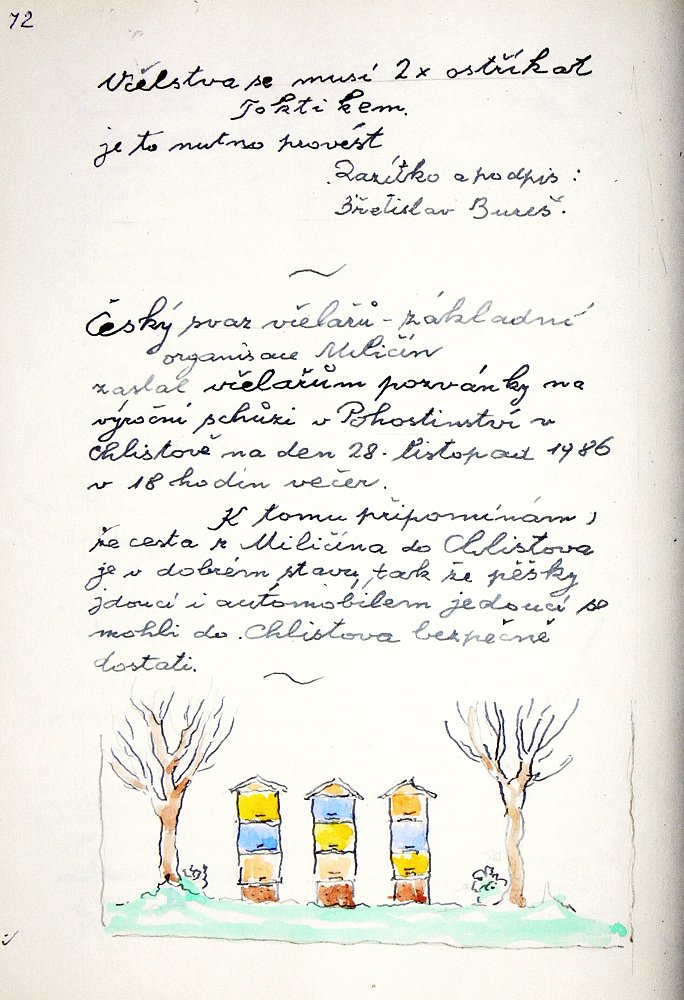 72
Včelstva se musí 2x ostříkat
Toktikem.
je to nutno provést
Razítko a podpis :
Břetislav Bureš.
Český svaz včelařů - základní
organisace Miličín
zaslal včelařům pozvánky na
výroční schůzi v Pohostinství v
Chlistově na den 28. listopad 1986
v 18 hodin večer.
K tomu připomínám,
že cesta z Miličína do Chlistova
je v dobrém stavu, tak že pěšky
jdoucí i automobilem jedoucí se
mohli do Chlistova bezpečně
dostati.